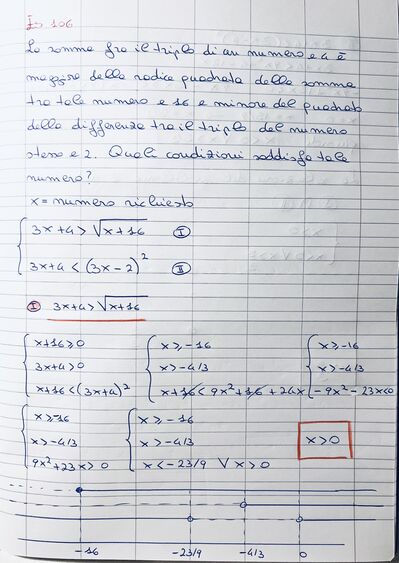 Es 106
La somma fra il triplo di un numero e 4 è
maggiore della radice quadrata della somma
tra tale numero e 16 e minore del quadrato
della differenza tra il triplo del numero
stesso e 2. Quali condizioni soddisfa tale
numero?
x = numero richiesto
3x+4 > √x+16 I
3x+4 < (3x-2)² II
I 3x+4 > √x+16
x+16 ≥ 0 x ≥ -16 x ≥ -16
3x+4 > 0 x > -4/3 x > -4/3
x+16 < (3x+4)² x+16 < 9x²+16+24x -9x²-23x<0
x ≥ -16 x ≥ -16
x > -4/3 x > -4/3 x > 0
9x²+23x > 0 x < -23/9 V x > 0
-16 -23/9 -4/3 0